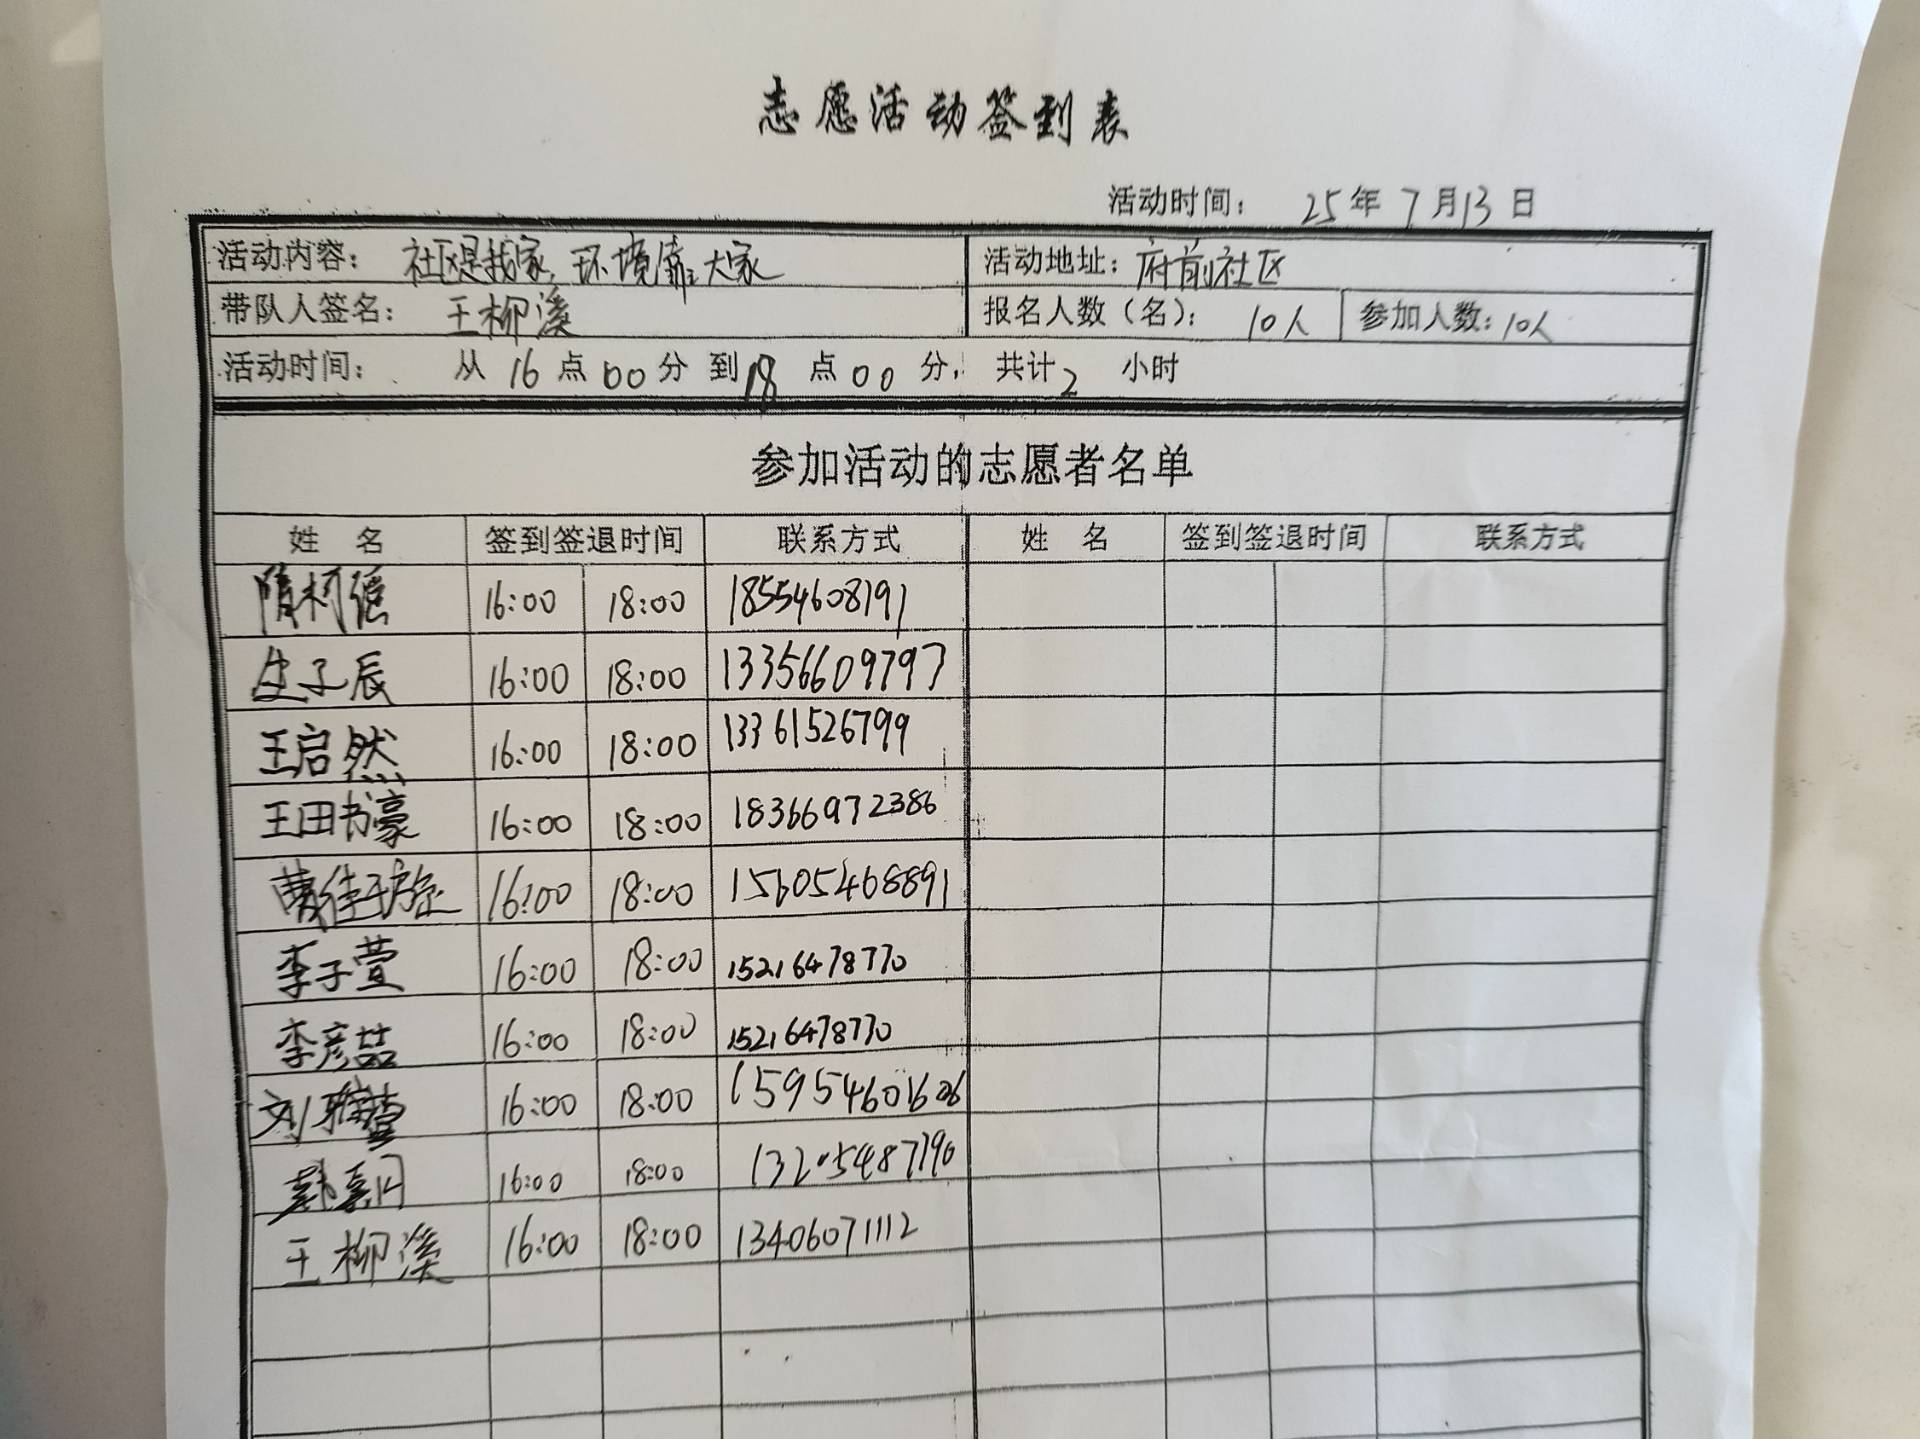 志愿活动签到表
活动时间： 25年7月13日
活动内容： 社区是我家，环境靠大家 活动地址：府前社区
带队人签名： 王柳溪 报名人数（名）： 10人 参加人数：10人
活动时间： 从16点00分到18点00分，共计2小时
参加活动的志愿者名单
姓 名 签到签退时间 联系方式 姓 名 签到签退时间 联系方式
隋柯德 16:00 18:00 18554608191
生子辰 16:00 18:00 13356609797
王启然 16:00 18:00 13361526799
王田书豪 16:00 18:00 18366972386
曹佳 16:00 18:00 15605468891
李子萱 16:00 18:00 15216478770
李彦喆 16:00 18:00 15216478770
刘雅萱 16:00 18:00 15954601606
韩 16:00 18:00 13205487190
王柳溪 16:00 18:00 13406071112